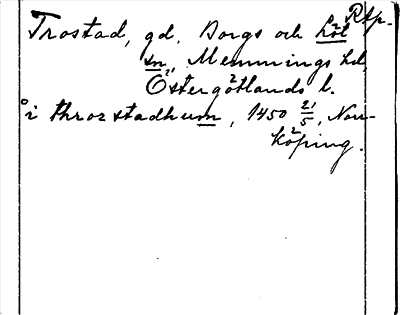 Trostad, gd. Borgs och Löt Rtp.
sn, Memmings hd,
Östergötlands l.
i throzstadhum, 1450 21/5, Nor-
köping.